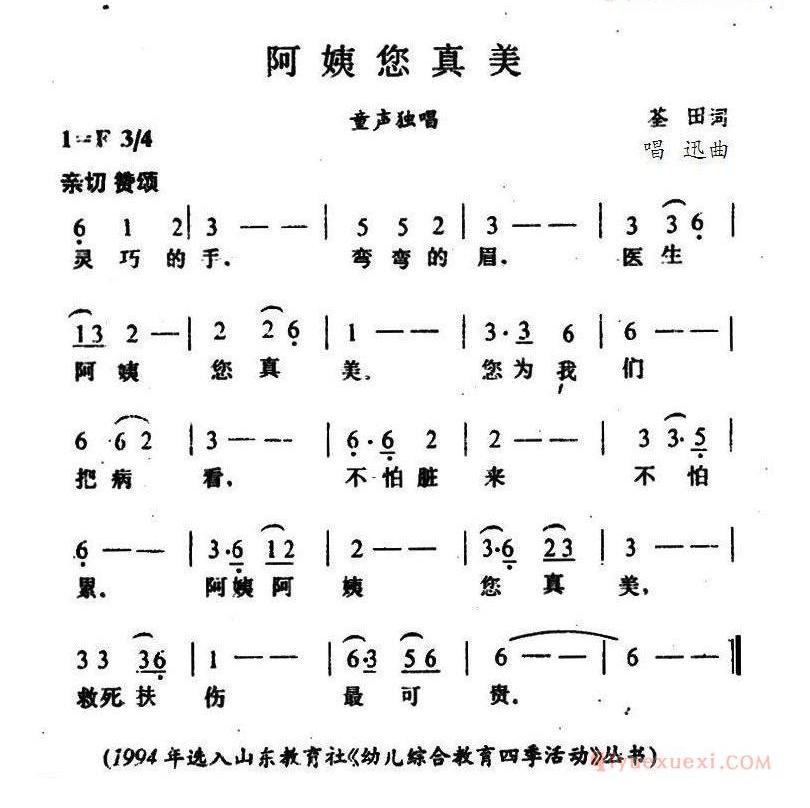 阿姨您真美
童声独唱 荃田词
1=F 3/4 唱迅曲
亲切 赞颂
6 1 2 | 3 — — | 5 5 2 | 3 — — | 3 3 6 |
灵巧的手. 弯弯的眉. 医生
13 2 — | 2 2 6 | 1 — — | 3·3 6 | 6 — — |
阿姨 您真 美. 您为我 们
6 62 | 3 — — | 6·6 2 | 2 — — | 3 3·5 |
把病 看. 不怕脏 来 不怕
6 — — | 3·6 12 | 2 — — | 3·6 23 | 3 — — |
累. 阿姨阿 姨 您真 美,
3 3 36 | 1 — — | 6·3 56 | 6 — — | 6 — — ‖
救死扶 伤 最可 贵.
(1994年选入山东教育社《幼儿综合教育四季活动》丛书)
qiyuexuexi.com